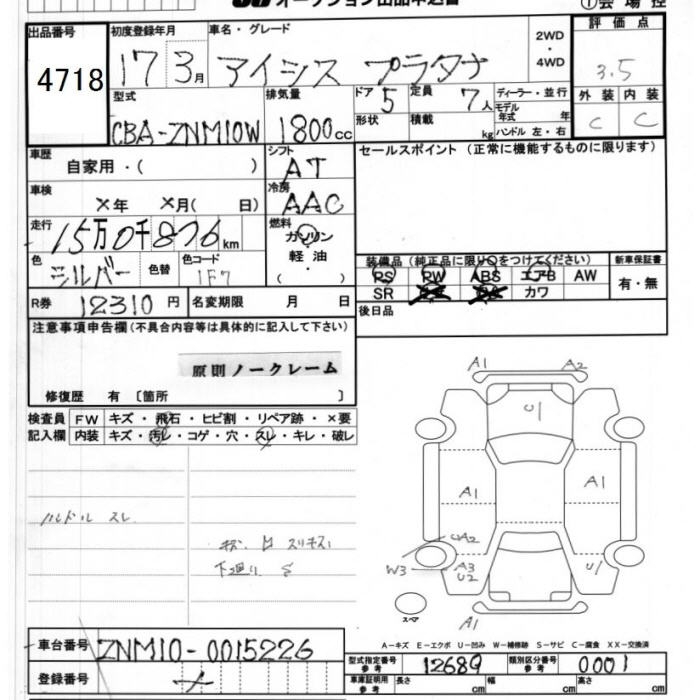 オークション出品申込書
①会場控
出品番号
4718
初度登録年月
17 3月
車名・グレード
アイシス プラタナ
2WD
・
4WD
評価点
3.5
型式
CBA-ZNM10W
排気量
1800cc
ドア 5
形状
定員 7人
積載 kg
ディーラー・並行
モデル年式 年
ハンドル 左・右
外装 内装
C C
車歴
自家用・( )
シフト
AT
セールスポイント (正常に機能するものに限ります)
車検
×年 ×月( 日)
冷房
AAC
走行
15万0千876km
燃料
ガソリン
・
軽油
・
( )
色
シルバー
色替
色コード
1F7
装備品(純正品に限り○をつけてください)
新車保証書
PS PW ABS エアB AW
有・無
SR カワ
R券 12310円
名変期限 月 日
後日品
注意事項申告欄(不具合内容等は具体的に記入して下さい)
原則ノークレーム
修復歴 有 〔箇所 〕
検査員記入欄
FW キズ・飛石・ヒビ割・リペア跡・×要
内装 キズ・汚レ・コゲ・穴・スレ・キレ・破レ
ハンドル スレ
下廻り S
A1 A2
U1
A1 A1
A2
W3 A3 U2 U1
スペア
A-キズ E-エクボ U-凹み W-補修跡 S-サビ C-腐食 XX-交換済
車台番号 ZNM10-0015226
型式指定番号参考 12689
類別区分番号参考 0001
登録番号
車庫証明用参考 長さ cm 幅 cm 高さ cm